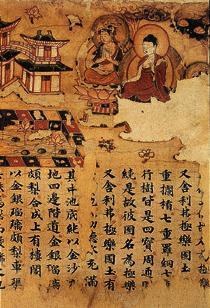 又舍利弗極樂國土
重欄楯七重羅網七
行樹皆是四寶周迊
繞是故彼國名為極樂
又舍利弗極樂國土有
充滿
其中池底純以金沙
地四邊階道金銀瑠璃
頗梨合成上有樓閣
以金銀瑠璃頗梨車璖